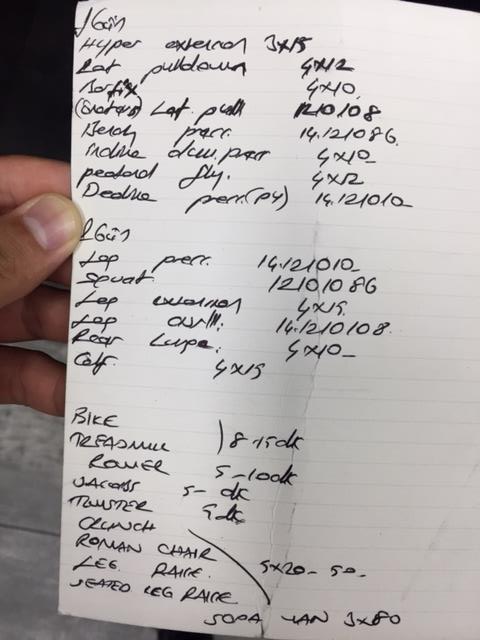 1Gün
Hyper extensıon 3x15
Lat pulldown 4x12
Barfix 4x10
Lat. pull 12 10 10 8
Bench press. 14.12 10 8 6
Incline dum. press 4x10
pectoral fly. 4x12
Decline press (P4) 14.12 10 10
2Gün
Leg press. 14.12 10 10
Squat. 12 10 10 8 6
Leg extensıon 4x15
Leg curll. 14.12 10 10 8
Rear Lunge. 4x10
Calf. 4x15
BIKE
TREADMILL ) 8-15dk
ROWER 5-10dk
JACOBS 5- dk
TWISTER 5dk
CRUNCH
ROMAN CHAIR
LEG. RAISE. 5x20-50-
SEATED LEG RAISE
SOPA YAN 3x80